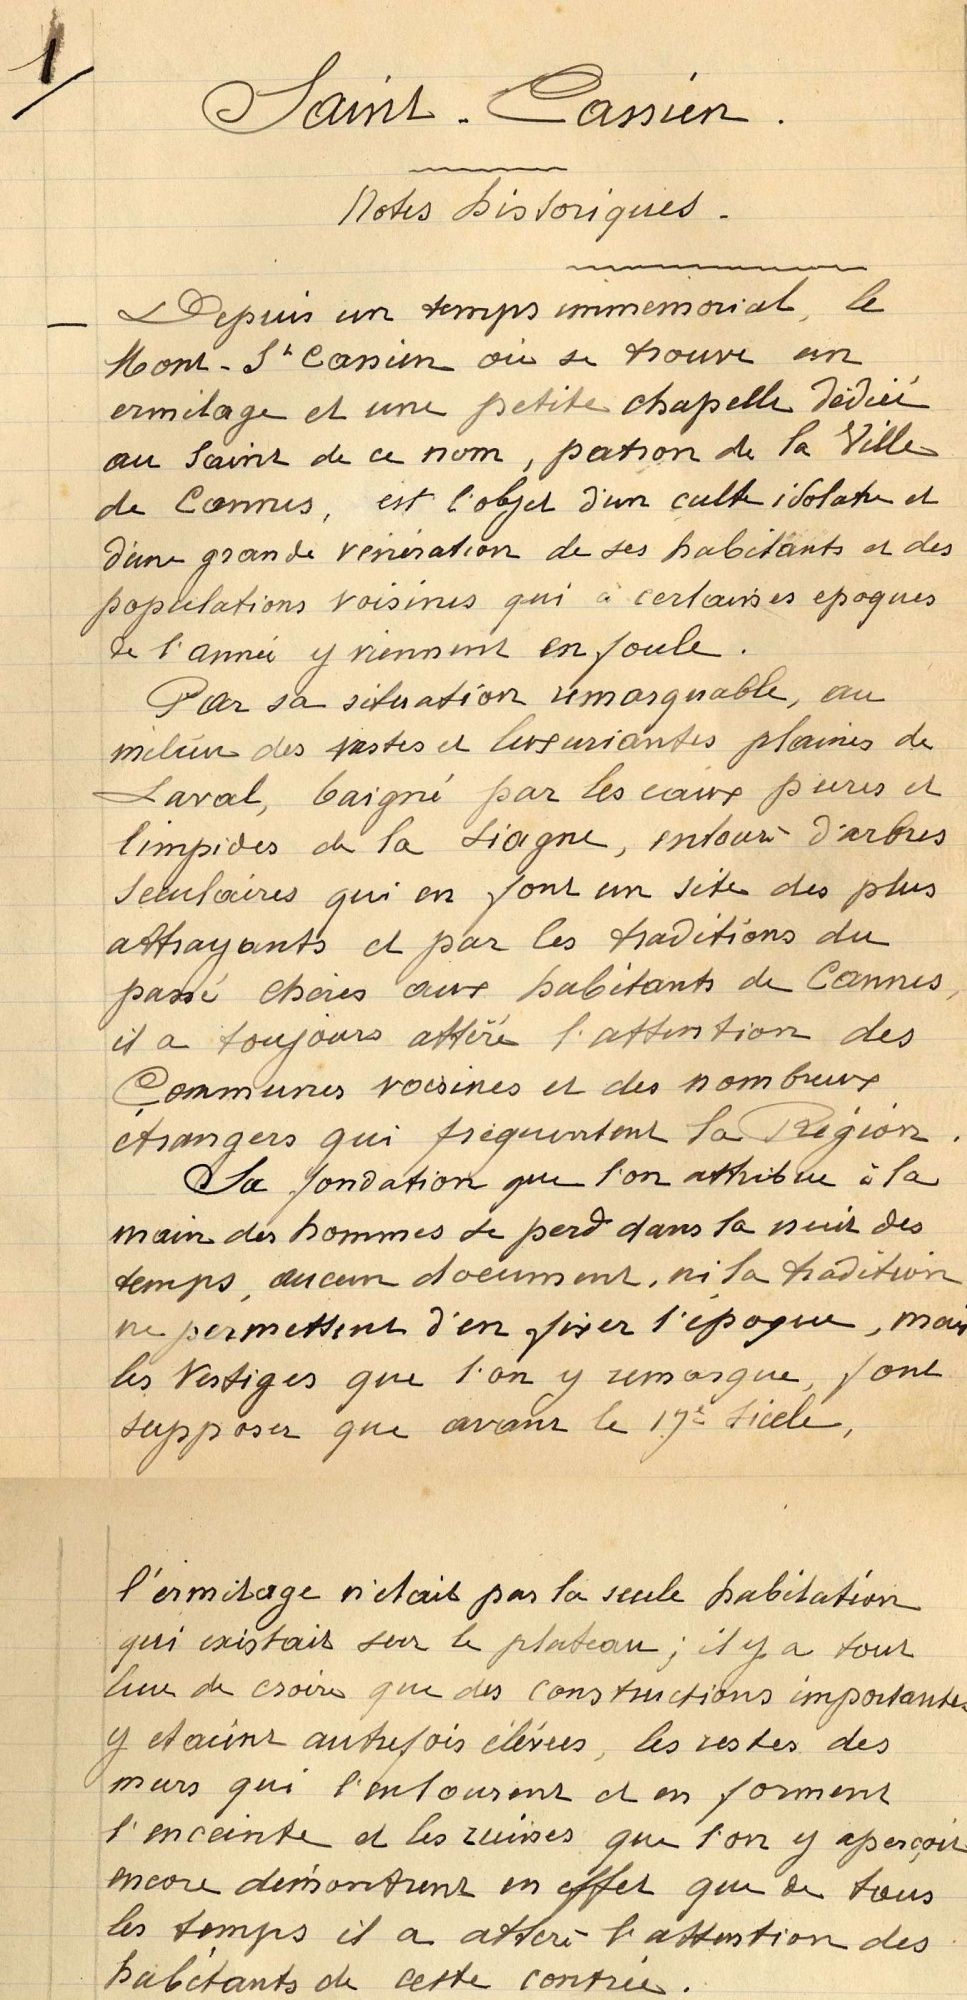 1/
Saint-Cassien.
Notes historiques.
— Depuis un temps immémorial, le
Mont-St Cassien où se trouve un
ermitage et une petite chapelle dédiée
au Saint de ce nom, patron de la Ville
de Cannes, est l'objet d'un culte idolatre et
d'une grande vénération de ses habitants et des
populations voisines qui à certaines epoques
de l'année y viennent en foule.
Par sa situation remarquable, au
milieu des vastes et luxuriantes plaines de
Laval, baigné par les eaux pures et
limpides de la Siagne, entouré d'arbres
séculaires qui en font un site des plus
attrayants et par les traditions du
passé chères aux habitants de Cannes,
il a toujours attiré l'attention des
Communes voisines et des nombreux
étrangers qui fréquentent la Région.
Sa fondation que l'on attribue à la
main des hommes se perd dans la nuit des
temps, aucun document, ni la tradition
ne permettent d'en fixer l'époque, mais
les Vestiges que l'on y remarque, font
supposer que avant le 17e siècle,
l'ermitage n'etait pas la seule habitation
qui existait sur le plateau; il y a tout
lieu de croire que des constructions importantes
y etaient autrefois élévées, les restes des
murs qui l'entourent et en forment
l'enceinte et les ruines que l'on y aperçoit
encore démontrent en effet que de tous
les temps il a attiré l'attention des
habitants de cette contrée.